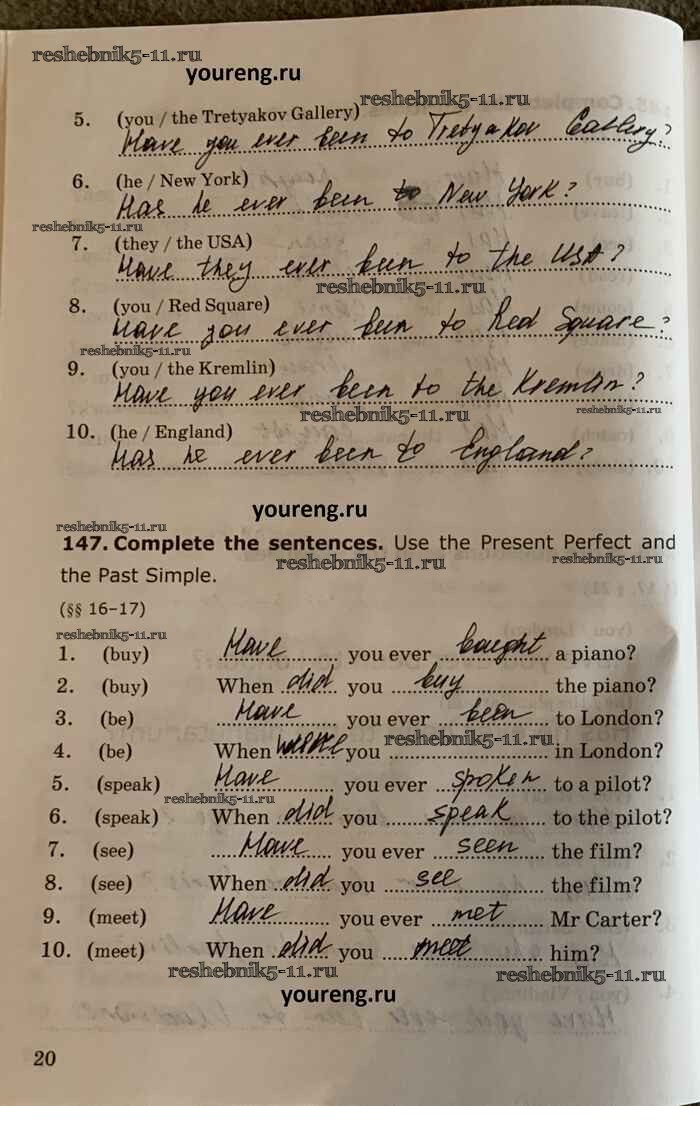 reshebnik5-11.ru
youreng.ru
reshebnik5-11.ru
5. (you / the Tretyakov Gallery)
Have you ever been to Tretyakov Gallery?
6. (he / New York)
Has he ever been to New York?
reshebnik5-11.ru
7. (they / the USA)
Have they ever been to the USA?
reshebnik5-11.ru
8. (you / Red Square)
Have you ever been to Red Square?
reshebnik5-11.ru
9. (you / the Kremlin)
Have you ever been to the Kremlin?
reshebnik5-11.ru
reshebnik5-11.ru
10. (he / England)
Has he ever been to England?
youreng.ru
reshebnik5-11.ru
147. Complete the sentences. Use the Present Perfect and
reshebnik5-11.ru
the Past Simple.
(§§ 16–17)
reshebnik5-11.ru
1. (buy) Have you ever bought a piano?
2. (buy) When did you buy the piano?
3. (be) Have you ever been to London?
reshebnik5-11.ru
4. (be) When were you in London?
5. (speak) Have you ever spoken to a pilot?
reshebnik5-11.ru
6. (speak) When did you speak to the pilot?
7. (see) Have you ever seen the film?
8. (see) When did you see the film?
9. (meet) Have you ever met Mr Carter?
10. (meet) When did you meet him?
reshebnik5-11.ru
reshebnik5-11.ru
youreng.ru
20